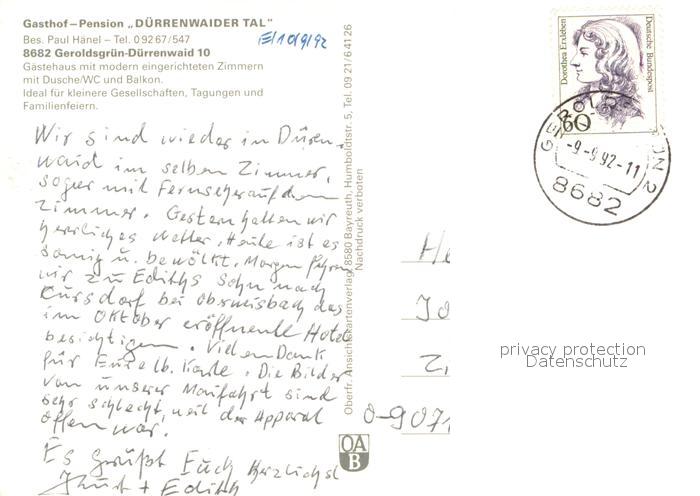 Gasthof–Pension „DÜRRENWAIDER TAL"
Bes. Paul Hänel – Tel. 09267/547
8682 Geroldsgrün-Dürrenwaid 10
Gästehaus mit modern eingerichteten Zimmern
mit Dusche/WC und Balkon.
Ideal für kleinere Gesellschaften, Tagungen und
Familienfeiern.
E/10/9/92
Wir sind wieder in Düren-
waid im selben Zimmer,
sogar mit Fernseher auf dem
Zimmer. Gestern hatten wir
herrliches Wetter, Heute ist es
sonnig u. bewölkt. Morgen fahren
wir zu Ediths Sohn nach
Cursdorf bei Oberweisbach das
im Oktober eröffnente Hotel
besichtigen. Vielen Dank
für Eure lb. Karte. Die Bilder
von unserer Maufahrt sind
sehr schlecht, weil der Apparat
offen war.
Es grüßt Euch herzlichst
+ Edith
Oberfr. Ansichtskartenverlag, 8580 Bayreuth, Humboldtstr. 5, Tel. 0921/64126
Nachdruck verboten
OA
B
Dorothea Erxleben
Deutsche Bundespost
60
-9.-9.92-11
2
8682
He
Jo
Zi
0-9071
privacy protection
Datenschutz